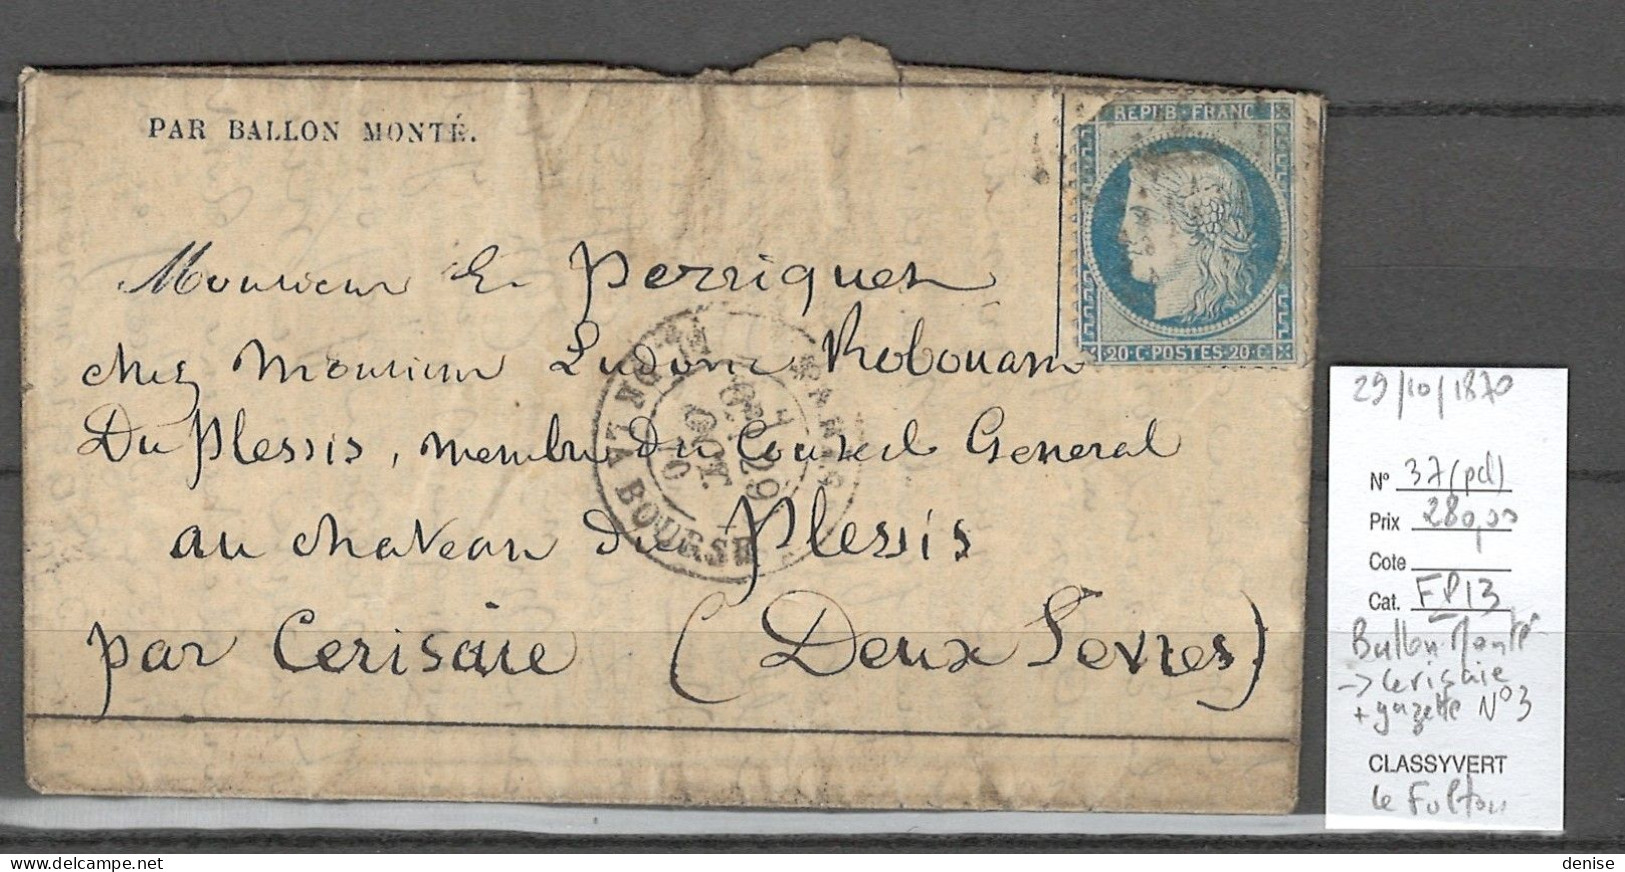 PAR BALLON MONTÉ.
REPUB · FRANC
20 · C · POSTES · 20 · C
Monsieur E. Perriquet
chez Monsieur Ludovic Robouam
Du Plessis, membre du Conseil General
au chateau du Plessis
par Cerisaie (Deux Sevres)
PARIS
PL. DE LA BOURSE
29
OCT.
70
29/10/1870
N° 37(pd)
Prix 280,00
Cote
Cat. FP13
Ballon Monté
-> Cerisaie
+ gazette N°3
CLASSYVERT
le Fulton
denise